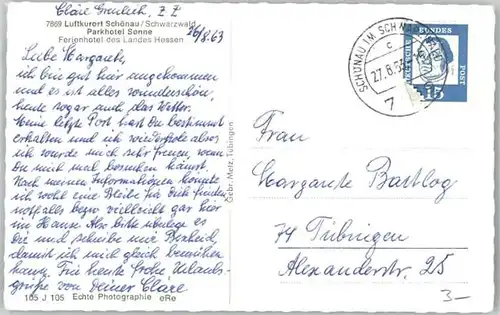 Cläre Greulich, z Z
7869 Luftkurort Schönau / Schwarzwald
Parkhotel Sonne
Ferienhotel des Landes Hessen
26/8.63
Liebe Margarete,
ich bin gut hier angekommen
und es ist alles wunderschön,
heute sogar auch das Wetter.
Meine letzte Post hast Du bestimmt
erhalten und ich wiederhole alles
ich würde mich sehr freuen, wenn
Du mich mal besuchen kämst.
Nach meinen Informationen könnte
ich wohl eine Bleibe für Dich finden
notfalls bezw vielleicht gar hier
im Hause. Also bitte überlege es
Dir und schreibe mir Bescheid,
damit ich mich gleich bemühen
kann. Für heute frohe Urlaubs-
grüße von Deiner Cläre
105 J 105 Echte Photographie eRe
Gebr. Metz, Tübingen
SCHÖNAU IM SCHWARZWALD
c
27.8.63
7
DEUTSCHE BUNDESPOST
15
Frau
Margarete Bastlog
74 Tübingen
Alexanderstr. 25
3-